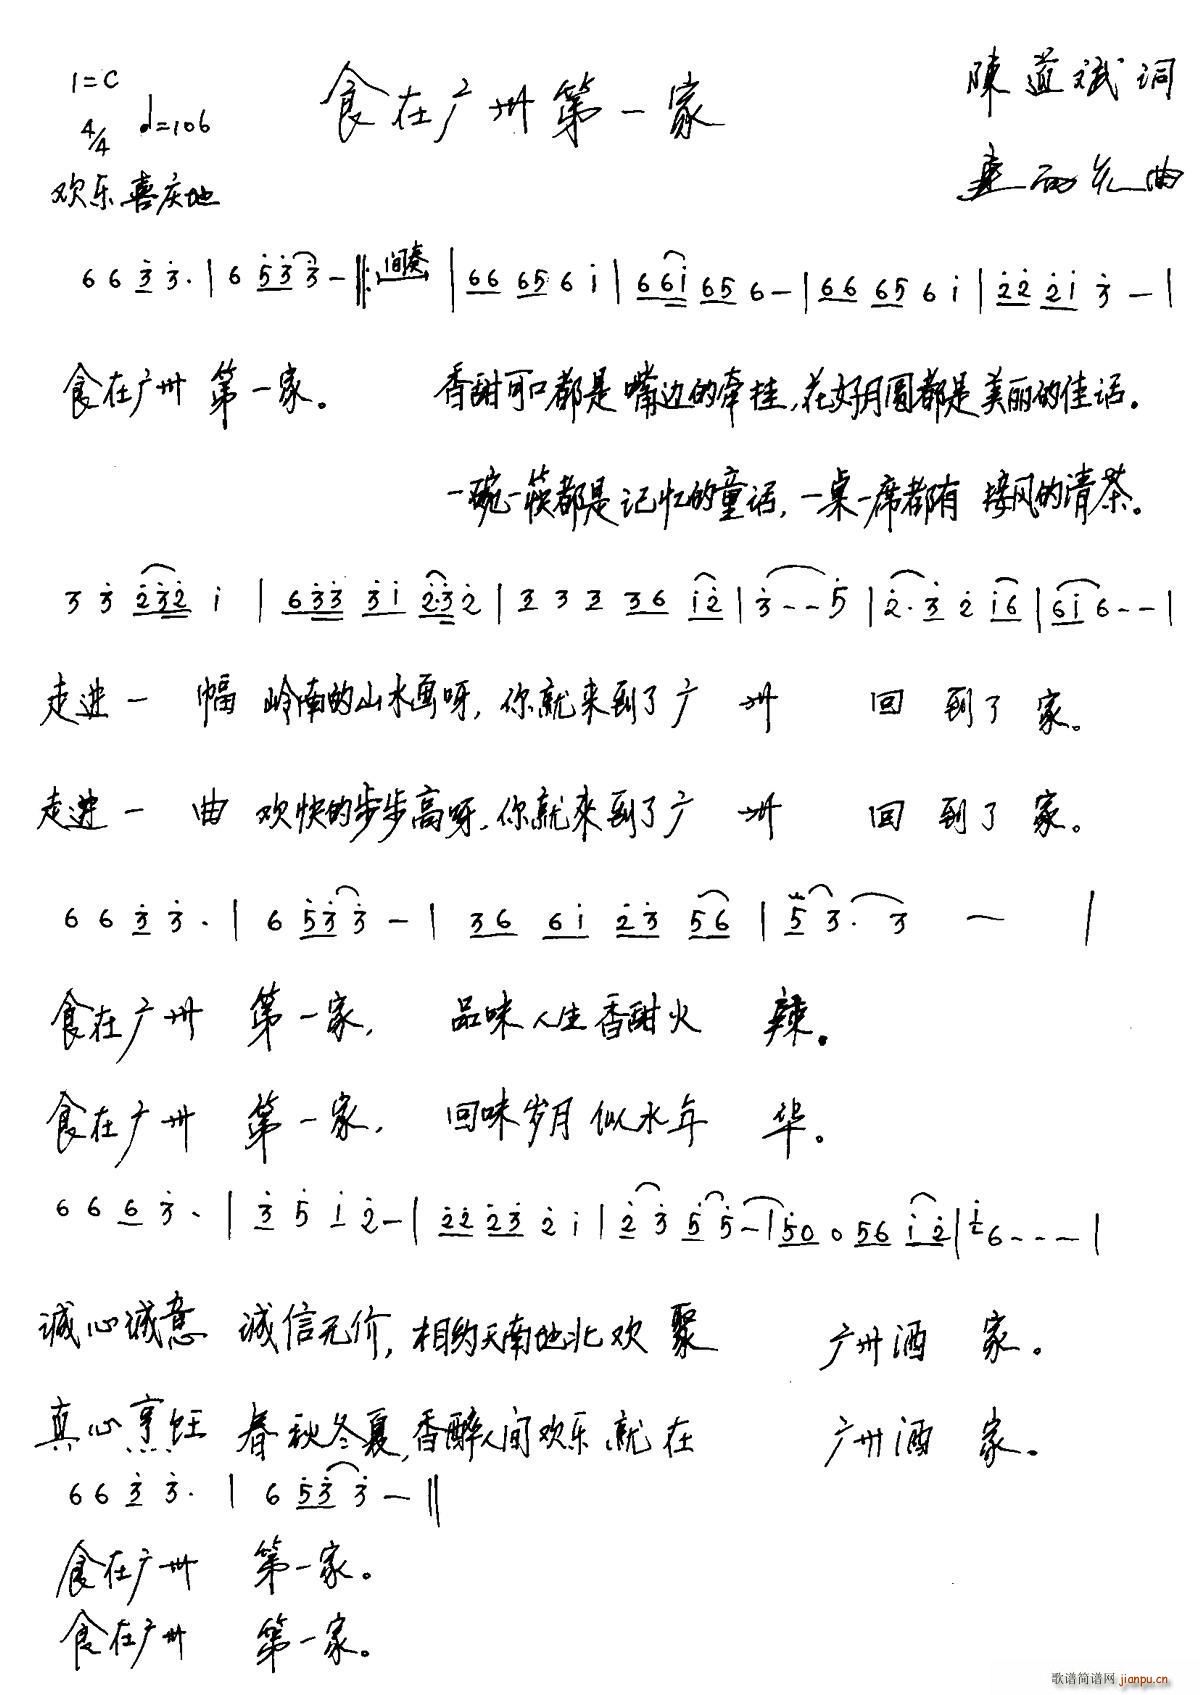 1=C
食在广州第一家
陳道斌词
4/4 ♩=106
曲
欢乐喜庆地
6 6 3̇ 3̇· | 6 5̇3̇ 3̇ – ‖: 间奏 | 66 65 6 i | 66i 65 6 – | 66 65 6 i | 2̇2̇ 2̇i 3̇ – |
食在广州 第一家。 香甜可口都是嘴边的牵挂,花好月圆都是美丽的佳话。
一碗一筷都是记忆的童话,一桌一席都有 接风的清茶。
3 3̇ 2̇3̇2̇ i | 63̇3̇ 3̇i 2̇·3̇2̇ | 3 3 3 36 i2̇ | 3̇ – – 5̇ | 2̇· 3̇ 2̇ i6 | 6i 6 – – |
走进一 幅 岭南的山水画呀,你就来到了广 州 回 到了 家。
走进一 曲 欢快的步步高呀,你就來到了广 州 回 到了 家。
6 6 3̇ 3̇· | 6 5̇3̇ 3̇ – | 36 6i 2̇3̇ 56 | 5̇ 3· 3 – |
食在广州 第一家, 品味人生香甜火 辣。
食在广州 第一家, 回味岁月似水年 华。
6 6 6 3̇· | 3̇ 5̇ i 2̇ – | 2̇2̇ 2̇3̇ 2̇ i | 2̇ 3̇ 5̇ 5̇ – | 5̇0 0 56 i2̇ | i2̇ 6 – – – |
诚心诚意 诚信无价,相约天南地北欢 聚 广州酒 家。
真心烹饪 春秋冬夏,香醉人间欢乐就在 广州酒 家。
6 6 3̇ 3̇· | 6 5̇3̇ 3̇ – ‖
食在广州 第一家。
食在广州 第一家。
歌谱简谱网 jianpu.cn